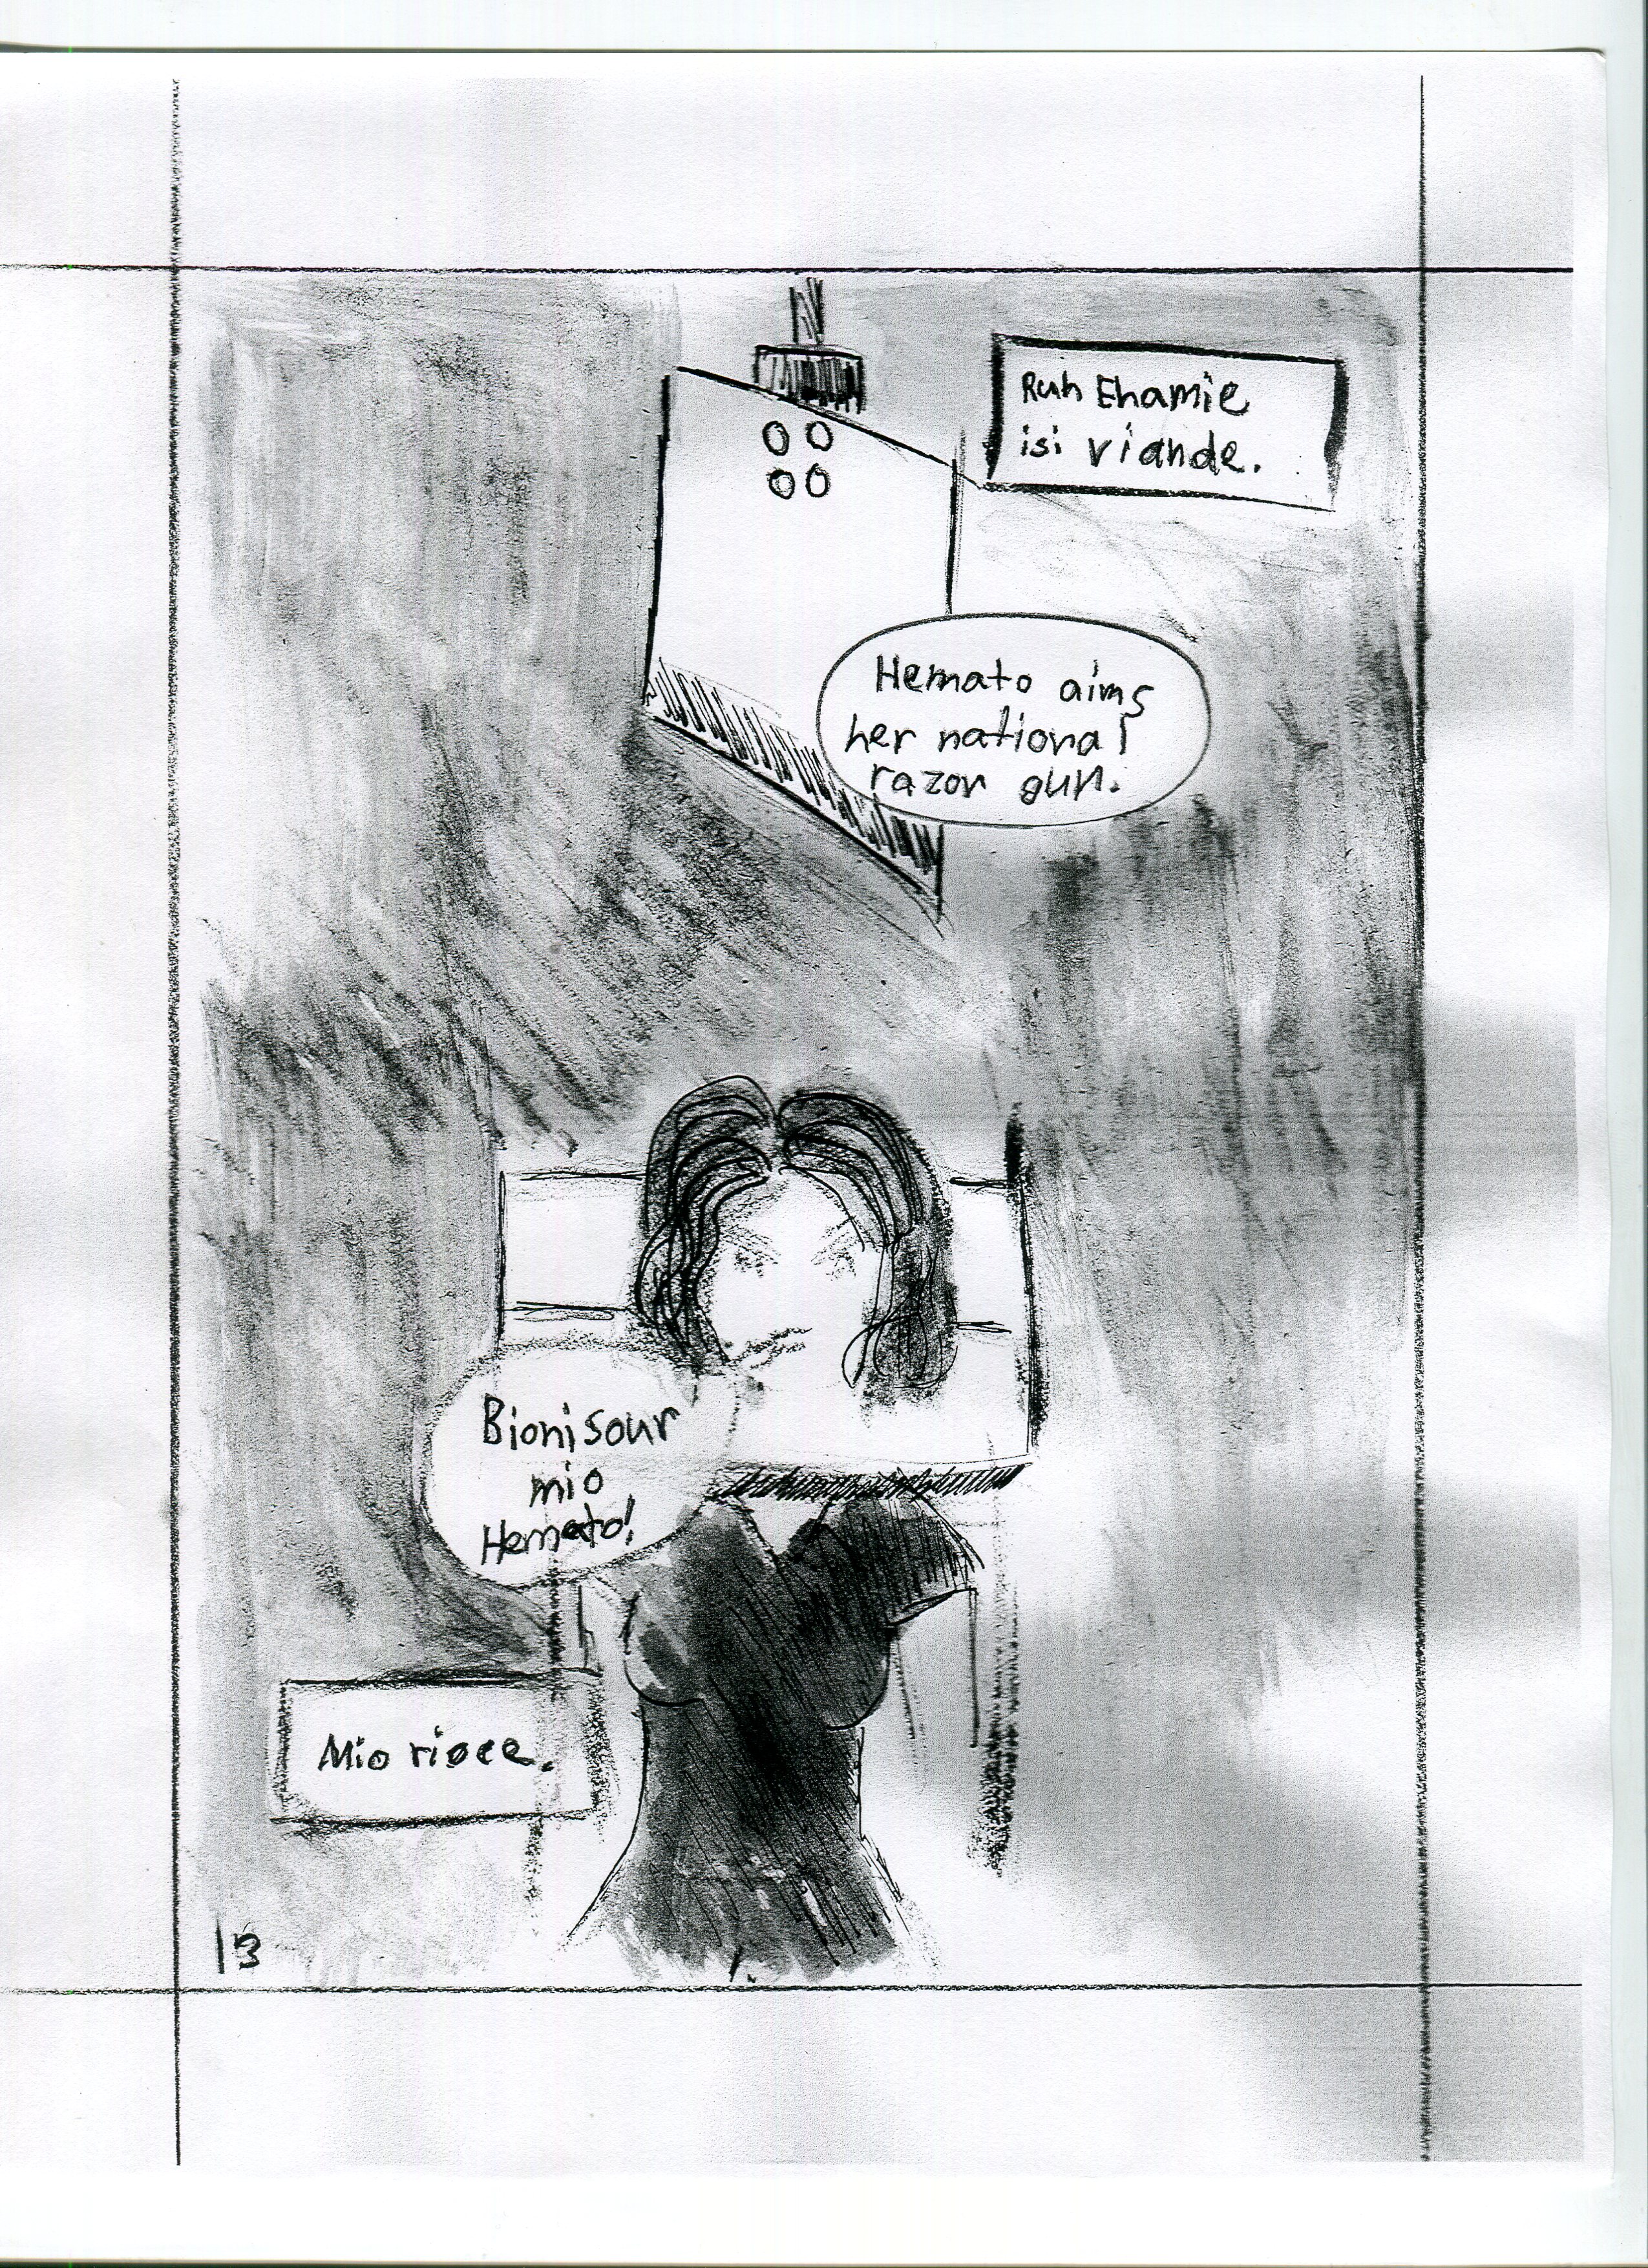 Ruh Ehamie
isi viande.
Hemato aims
her national
razor gun.
Bionisour
mio
Hemato!
Mio risee.
13